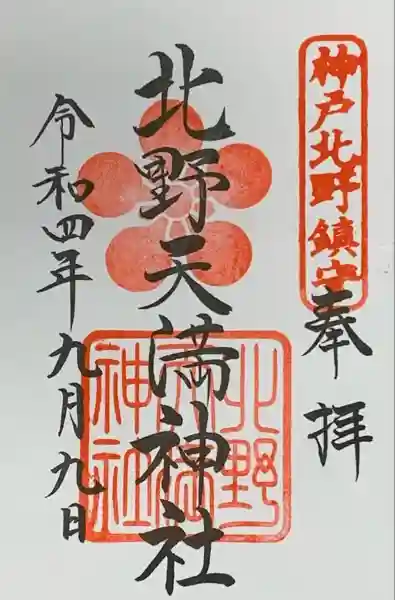 神戸北野鎮守
奉拝
北野天満神社
北野天満神社
令和四年九月九日